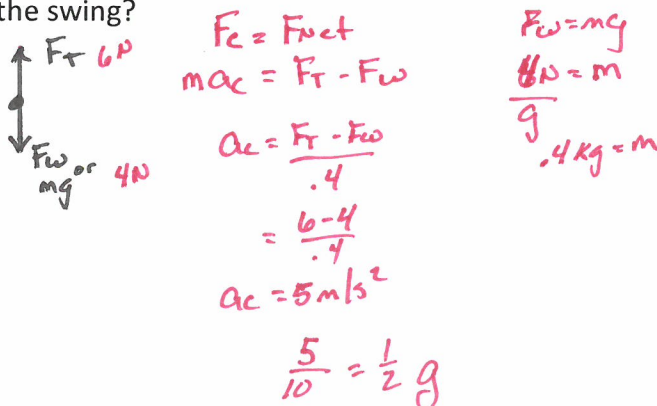 the swing?
F_T 6N
F_w or mg 4N
F_c = F_Net
ma_c = F_T - F_w
a_c = F_T - F_w / .4
= 6-4 / .4
a_c = 5 m/s²
5/10 = 1/2 g
F_w = mg
4N / g = m
.4 kg = m